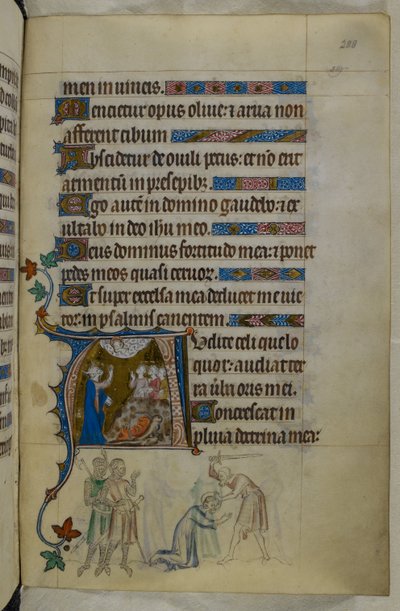 men in vineis.
Mencietur opus olive: ⁊ arua non
afferent cibum
Abscidetur de ouili pecus: ⁊ nō erit
armentū in presepibꝫ
Ego autē in domino gaudebo: ⁊ ex
ultabo in deo ihu meo.
Deus dominus fortitudo mea: ⁊ ponet
pedes meos quasi ceruoꝝ.
Et super excelsa mea deducet me uic
tor: in psalmis canentem.
Audite celi que lo
quor: audiat ter
ra uba oris mei.
Concrescat in
pluuia doctrina mea: